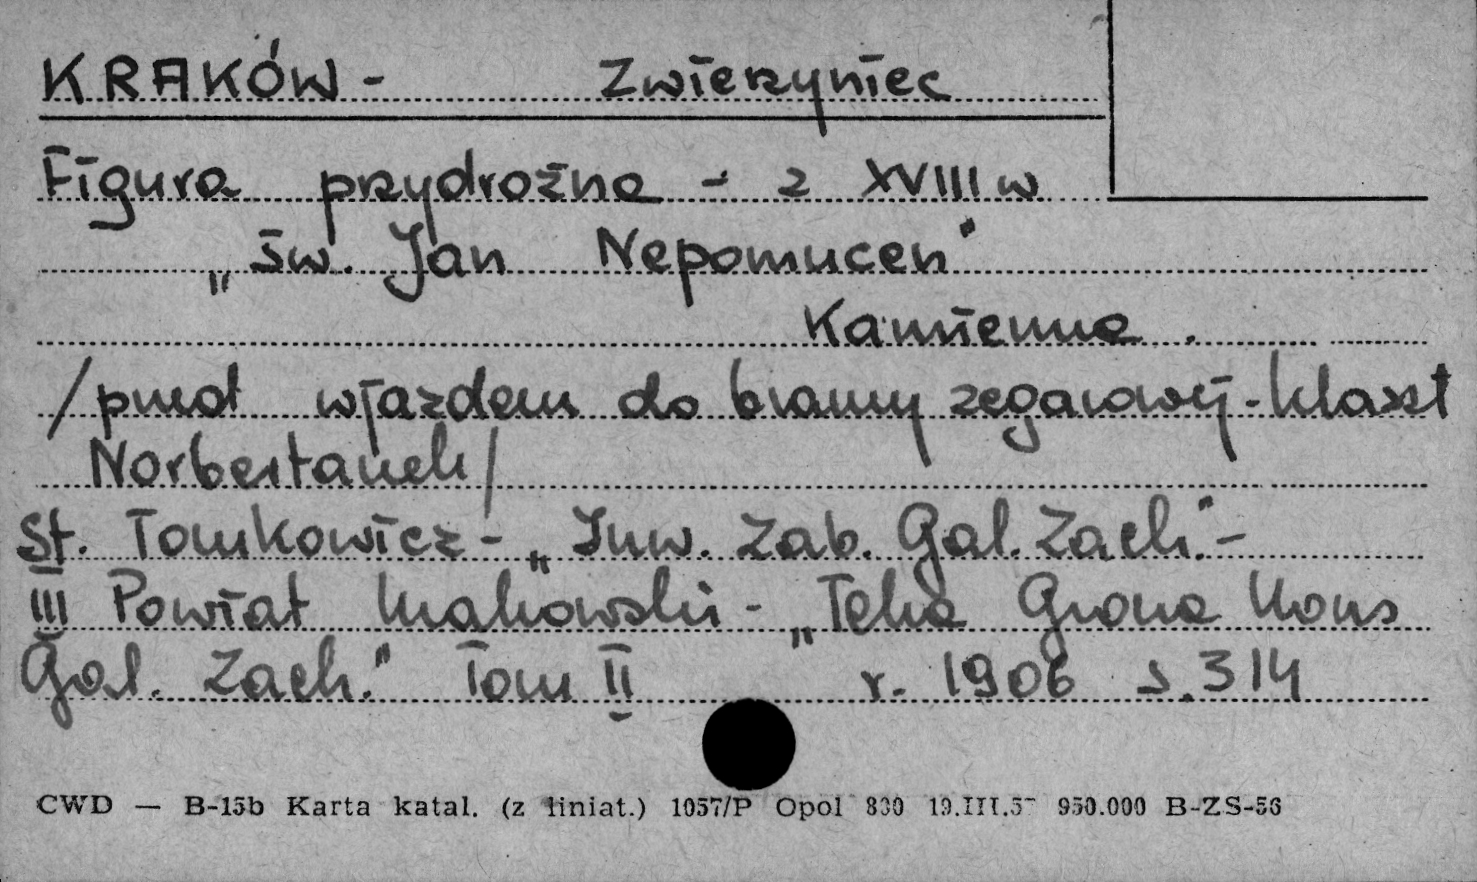 KRAKÓW - Zwierzyniec
Figura przydrożna - z XVIII w
„św. Jan Nepomucen"
Kamienna.
/przed wjazdem do bramy zegarowej - klaszt
Norbertanek/
St. Tomkowicz - „Inw. Zab. Gal. Zach." -
III Powiat krakowski - „Teka Grona Kons
Gal. Zach." Tom II r. 1906 s. 314
CWD — B-15b Karta katal. (z liniat.) 1057/P Opol 830 19.III.57 950.000 B-ZS-56